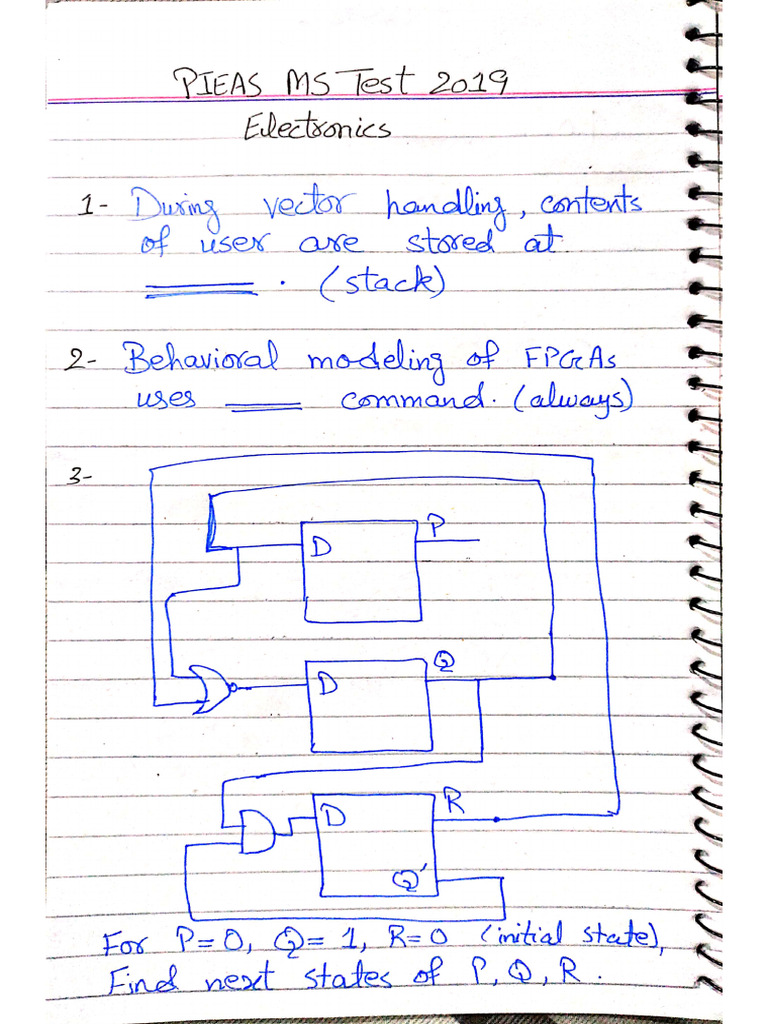 PIEAS MS Test 2019
Electronics
1- During vector handling, contents
of user are stored at
______. (stack)
2- Behavioral modeling of FPGAs
uses ____ command. (always)
3-
D P
D Q
D R
Q'
For P=0, Q=1, R=0 (initial state),
Find next states of P, Q, R.